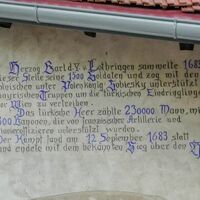 Herzog Karl d. V. v. Lothringen sammelte 1683
dieser Stelle seine 1500 Soldaten und zog mit den
polnischen unter Polenkönig Sobiesky unterstützt
Truppen um die türkischen Eindringlinge
Wien zu vertreiben.
Das türkische Heer zählte 230000 Mann, mi
300 Kanonen, die von französischer Artillerie u
unterstützt wurden.
Der Kampf fand am 12. September 1683 statt
und endete mit dem bekannten Sieg über der